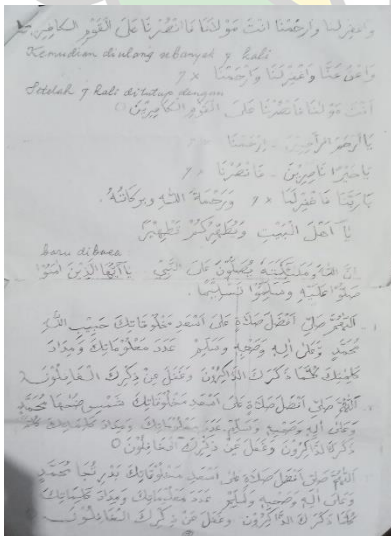 واغفرلنا وارحمنا انت مولىنا فانصرنا على القوم الكافرين
Kemudian diulang sebanyak 7 kali
واعف عنا واغفرلنا وارحمنا ×٧
Setelah 7 kali ditutup dengan
أنت مولىنا فانصرنا على القوم الكافرين
ياأرحم الراحمين - إرحمنا
ياخير الناصرين - فانصرنا ×٧
ياربنا فاغفرلنا ×٧ ورحمة الله وبركاته
يا أهل البيت ويطهركم تطهيرا
baru dibaca
إن الله وملائكته يصلون على النبي ياأيها الذين امنوا
صلوا عليه وسلموا تسليما
١- اللهم صل أفضل صلاة على أسعد مخلوقاتك حبيب الله
محمد وعلى اله وصحبه وسلم عدد معلوماتك ومداد
كلماتك كلما ذكرك الذاكرون وغفل عن ذكرك الغافلون
٢- اللهم صل أفضل صلاة على أسعد مخلوقاتك شمس الضحى محمد
وعلى اله وصحبه وسلم عدد معلوماتك ومداد كلماتك كلما
ذكرك الذاكرون وغفل عن ذكرك الغافلون
٣- اللهم صل أفضل صلاة على أسعد مخلوقاتك بدر الدجى محمد
وعلى اله وصحبه وسلم عدد معلوماتك ومداد كلماتك
كلما ذكرك الذاكرون وغفل عن ذكرك الغافلون